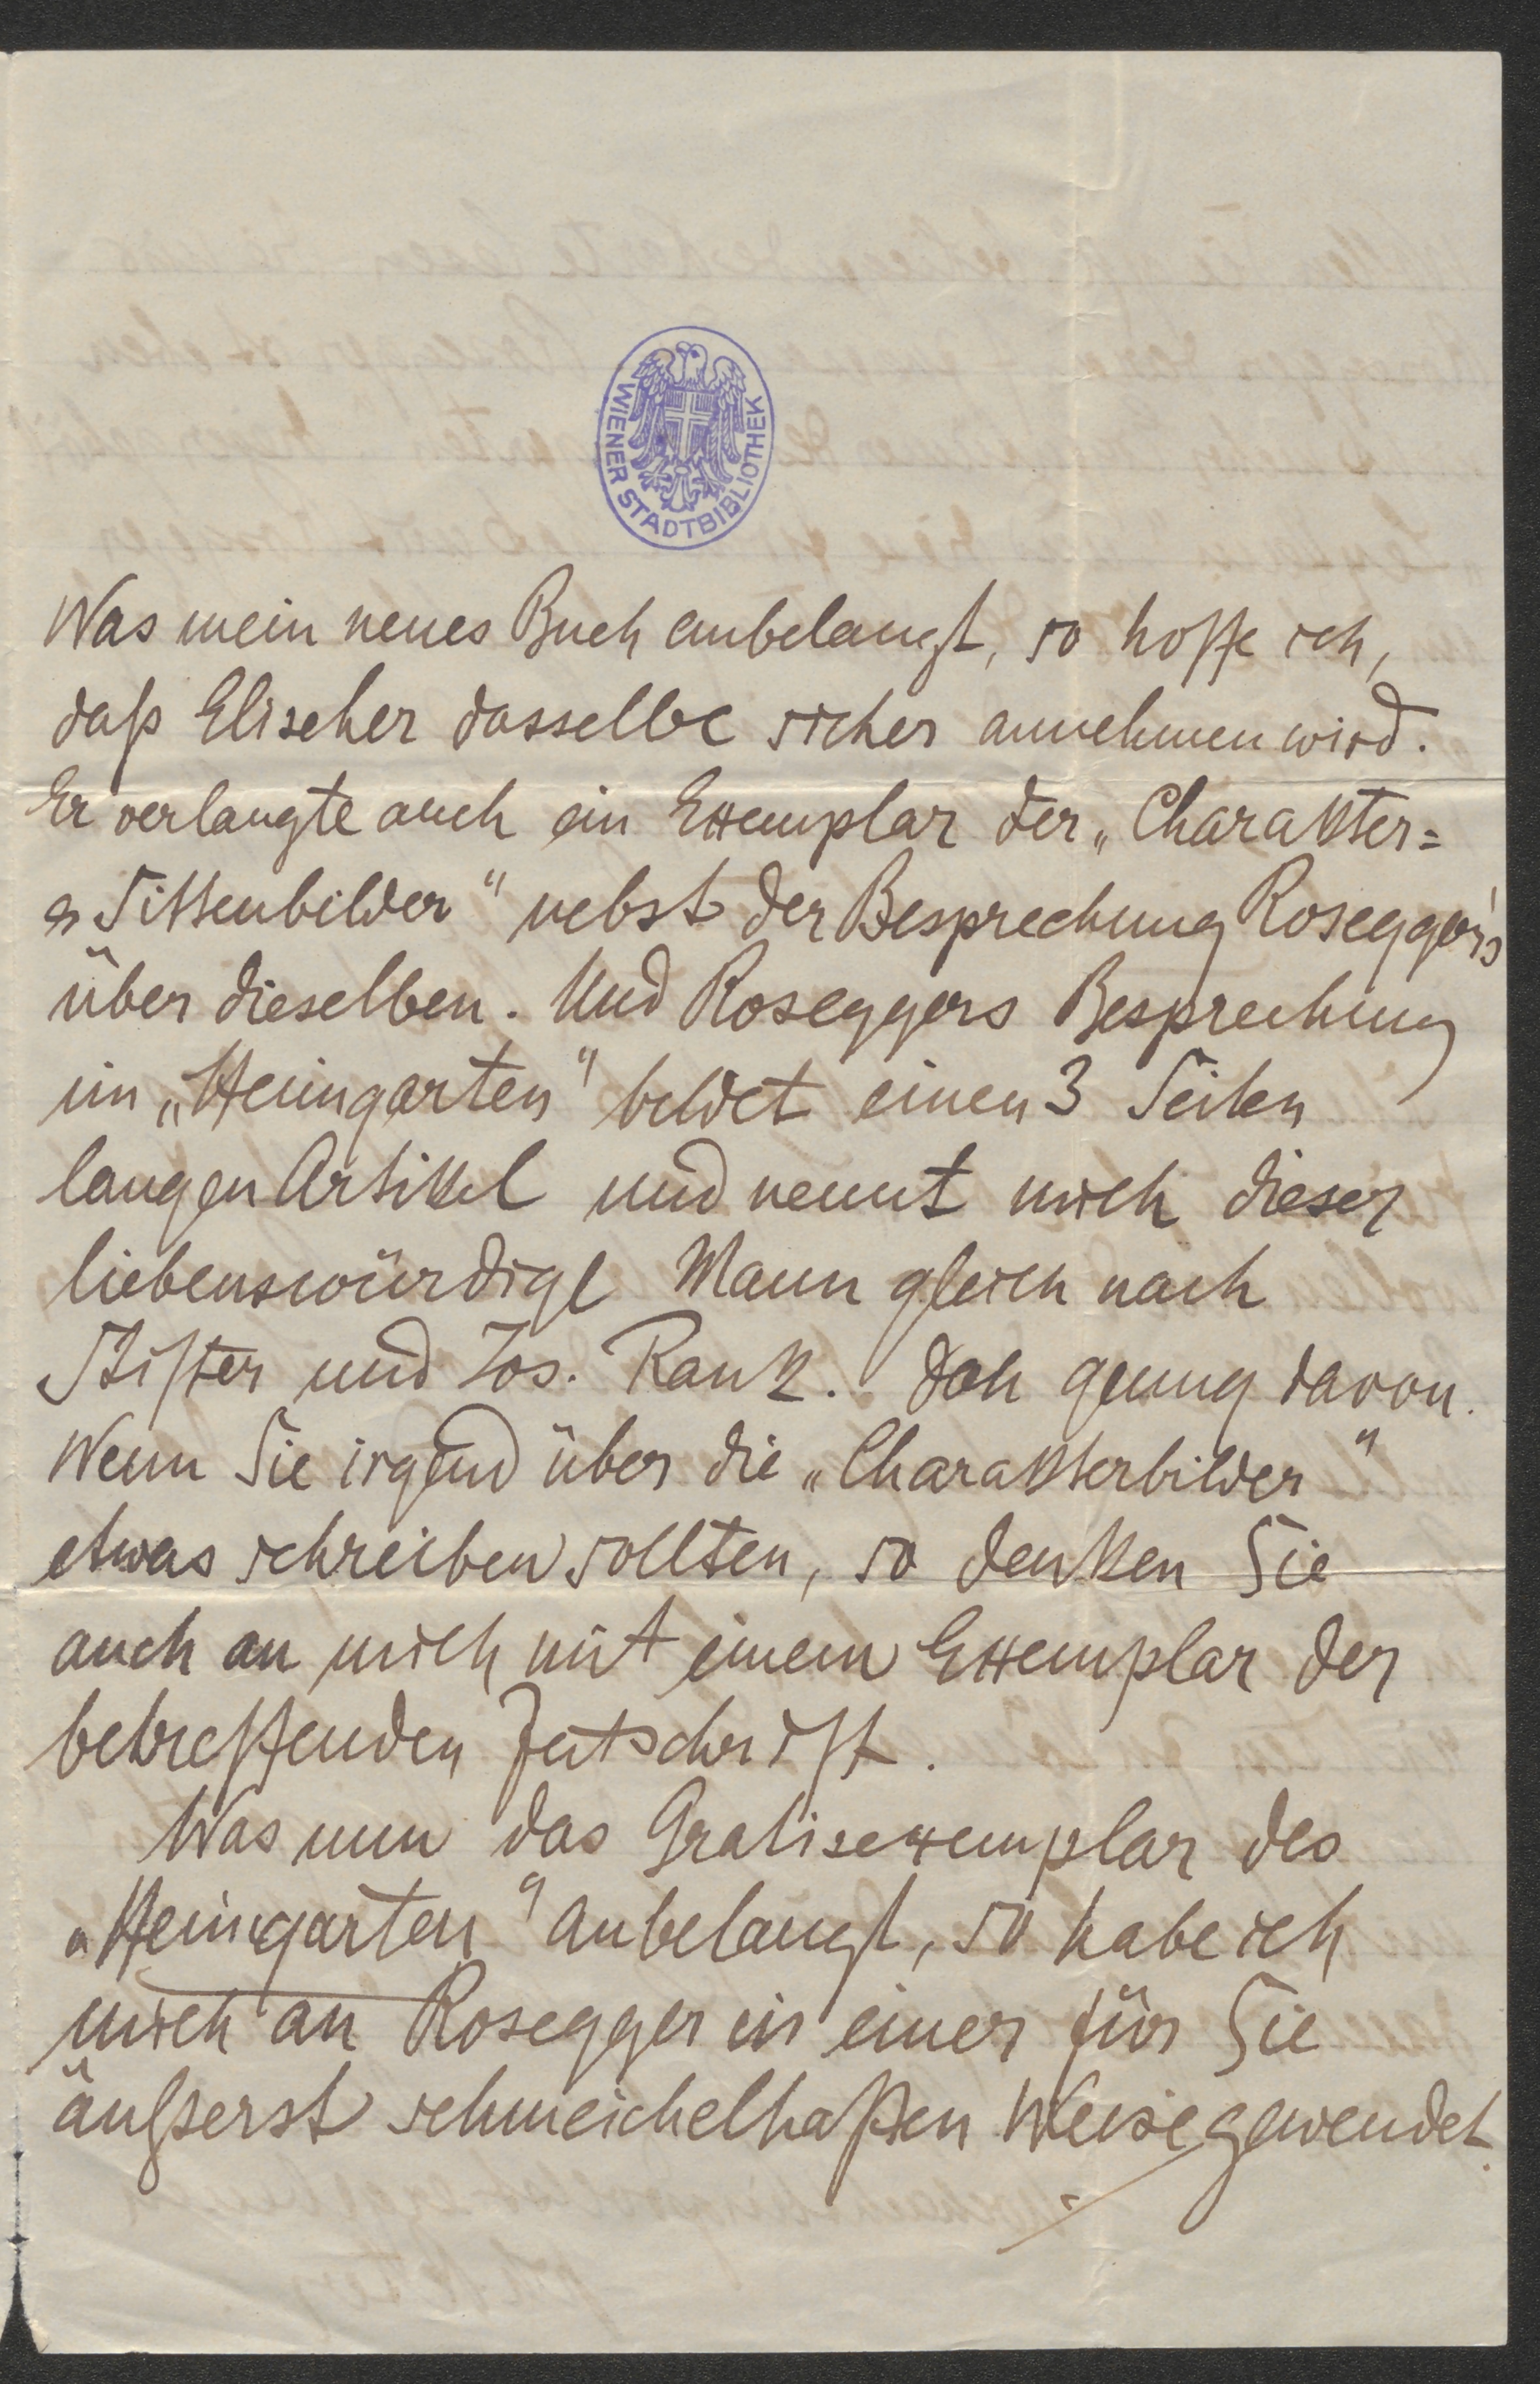 WIENER STADTBIBLIOTHEK
Was mein neues Buch anbelangt, so hoffe ich,
daß Elischer dasselbe sicher annehmen wird.
Er verlangte auch ein Exemplar der „Charakter=
& Sittenbilder" nebst der Besprechung Rosegger's
über dieselben. Und Roseggers Besprechung
im „Heimgarten" bildet einen 3 Seiten
langen Artikel und nennt mich dieser
liebenswürdige Mann gleich nach
Stifter und Jos. Rank. Doch genug davon.
Wenn Sie irgend über die „Charakterbilder"
etwas schreiben sollten, so denken Sie
auch an mich mit einem Exemplar der
betreffenden Zeitschrift.
Was nun das Gratisexemplar des
„Heimgarten" anbelangt, so habe ich
mich an Rosegger in einer für Sie
äußerst schmeichelhaften Weise gewendet.